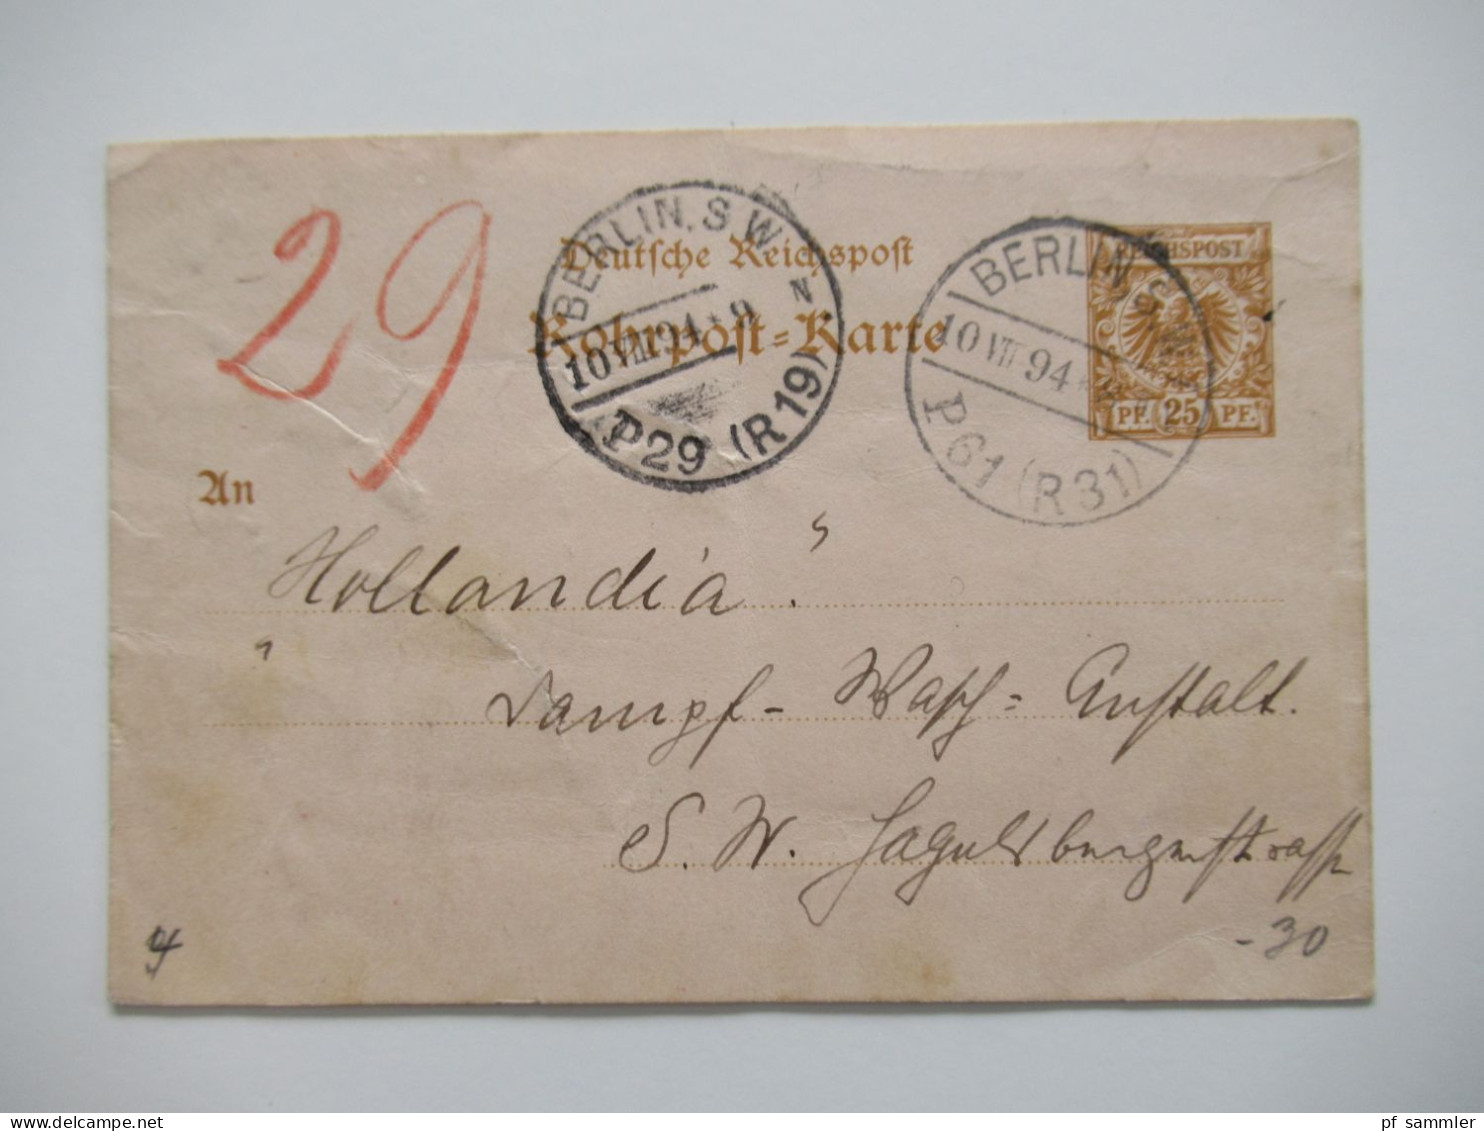 29
BERLIN, S.W.
N
10 VIII 94 * 9
P29 (R19)
Deutsche Reichspost
Rohrpost=Karte
BERLIN
10 VIII 94
P61 (R31)
REICHSPOST
PF. 25 PF.
An
„Hollandia“
Dampf- Wasch= Anstalt.
S. W.
-30
pf_sammler - Delcampe.net